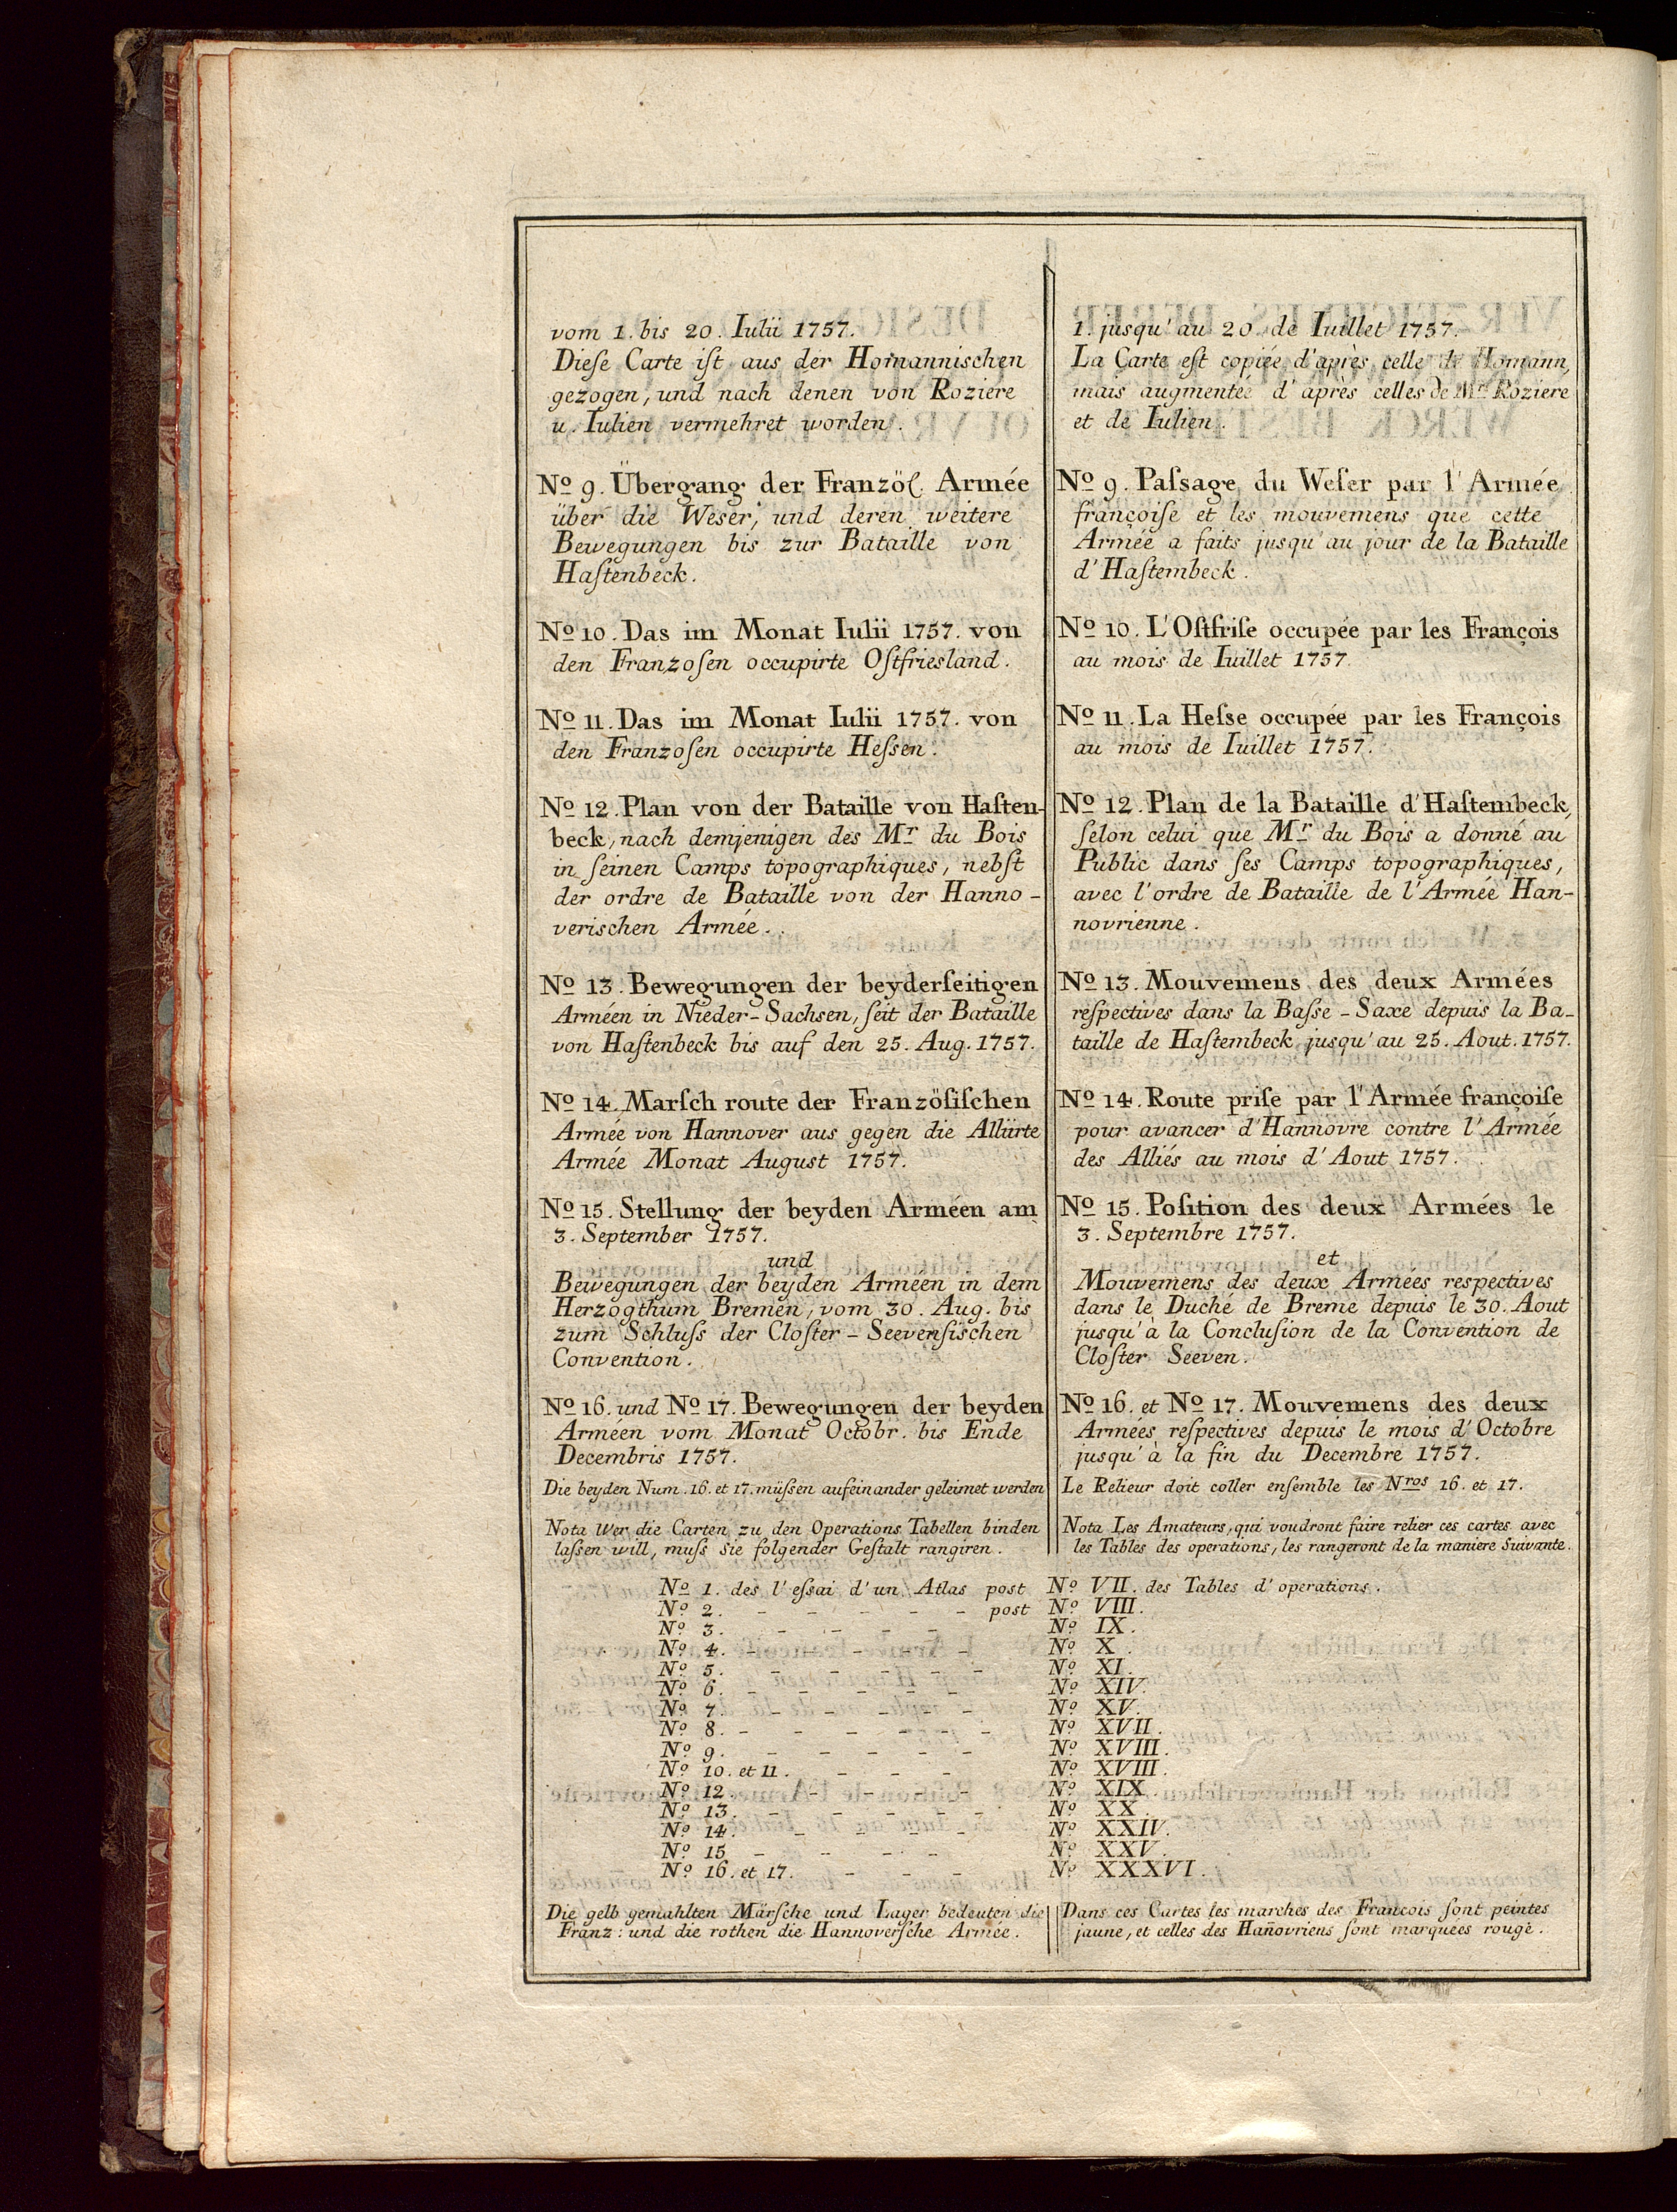 vom 1. bis 20. Iulii 1757.
Dieſe Carte iſt aus der Homannischen
gezogen, und nach denen von Roziere
u. Iulien vermehret worden.
No 9. Übergang der Franzöſ. Armée
über die Weser, und deren weitere
Bewegungen bis zur Bataille von
Haſtenbeck.
No 10. Das im Monat Iulii 1757. von
den Franzoſen occupirte Oſtfriesland.
No 11. Das im Monat Iulii 1757. von
den Franzoſen occupirte Heſsen.
No 12. Plan von der Bataille von Haſten-
beck, nach demjenigen des Mr du Bois
in ſeinen Camps topographiques, nebſt
der ordre de Bataille von der Hanno-
verischen Armée.
No 13. Bewegungen der beyderſeitigen
Arméen in Nieder-Sachsen, ſeit der Bataille
von Haſtenbeck bis auf den 25. Aug. 1757.
No 14. Marſch route der Franzöſiſchen
Armée von Hannover aus gegen die Alliirte
Armée Monat August 1757.
No 15. Stellung der beyden Arméen am
3. September 1757.
und
Bewegungen der beyden Arméen in dem
Herzogthum Bremen, vom 30. Aug. bis
zum Schluſs der Cloſter-Seevenſischen
Convention.
No 16. und No 17. Bewegungen der beyden
Arméen vom Monat Octobr. bis Ende
Decembris 1757.
Die beyden Num. 16. et 17. müſsen aufeinander geleimet werden
Nota Wer die Carten zu den Operations Tabellen binden
laſsen will, muſs Sie folgender Geſtalt rangiren.
1. jusqu'au 20 de Iuillet 1757.
La Carte eſt copiée d'après celle de Homann,
mais augmentée d'après celles de Mr Roziere
et de Iulien.
No 9. Paſsage du Weſer par l'Armée
françoiſe et les mouvemens que cette
Armée a faits jusqu'au jour de la Bataille
d'Haſtembeck.
No 10. L'Oſtfriſe occupée par les François
au mois de Iuillet 1757.
No 11. La Heſse occupée par les François
au mois de Iuillet 1757.
No 12. Plan de la Bataille d'Haſtembeck,
ſelon celui que Mr du Bois a donné au
Public dans ſes Camps topographiques,
avec l'ordre de Bataille de l'Armée Han-
novrienne.
No 13. Mouvemens des deux Armées
reſpectives dans la Baſse-Saxe depuis la Ba-
taille de Haſtembeck jusqu'au 25. Aout. 1757.
No 14. Route priſe par l'Armée françoiſe
pour avancer d'Hannovre contre l'Armée
des Alliés au mois d'Aout 1757.
No 15. Poſition des deux Armées le
3. Septembre 1757.
et
Mouvemens des deux Armées respectives
dans le Duché de Breme depuis le 30. Aout
jusqu'à la Concluſion de la Convention de
Cloſter Seeven.
No 16. et No 17. Mouvemens des deux
Armées reſpectives depuis le mois d'Octobre
jusqu'à la fin du Decembre 1757.
Le Relieur doit coller enſemble les Nros 16. et 17.
Nota Les Amateurs, qui voudront faire relier ces cartes avec
les Tables des operations, les rangeront de la maniere Suivante.
No 1. des l'eſsai d'un Atlas post No VII. des Tables d'operations.
No 2. - - - - - post No VIII.
No 3. - - - - No IX.
No 4. - - - - - No X.
No 5. - - - - - No XI.
No 6. - - - - - No XIV.
No 7. - - - - - No XV.
No 8. - - - - - - No XVII.
No 9. - - - - - No XVIII.
No 10. et 11. - - - No XVIII.
No 12. - - - - No XIX.
No 13. - - - - - No XX.
No 14. - - - - No XXIV.
No 15 - - - - No XXV.
No 16. et 17. - - - No XXXVI.
Die gelb gemahlten Märſche und Lager bedeuten die
Franz: und die rothen die Hannoverſche Armée.
Dans ces Cartes les marches des Francois ſont peintes
jaune, et celles des Hañovriens ſont marquées rouge.